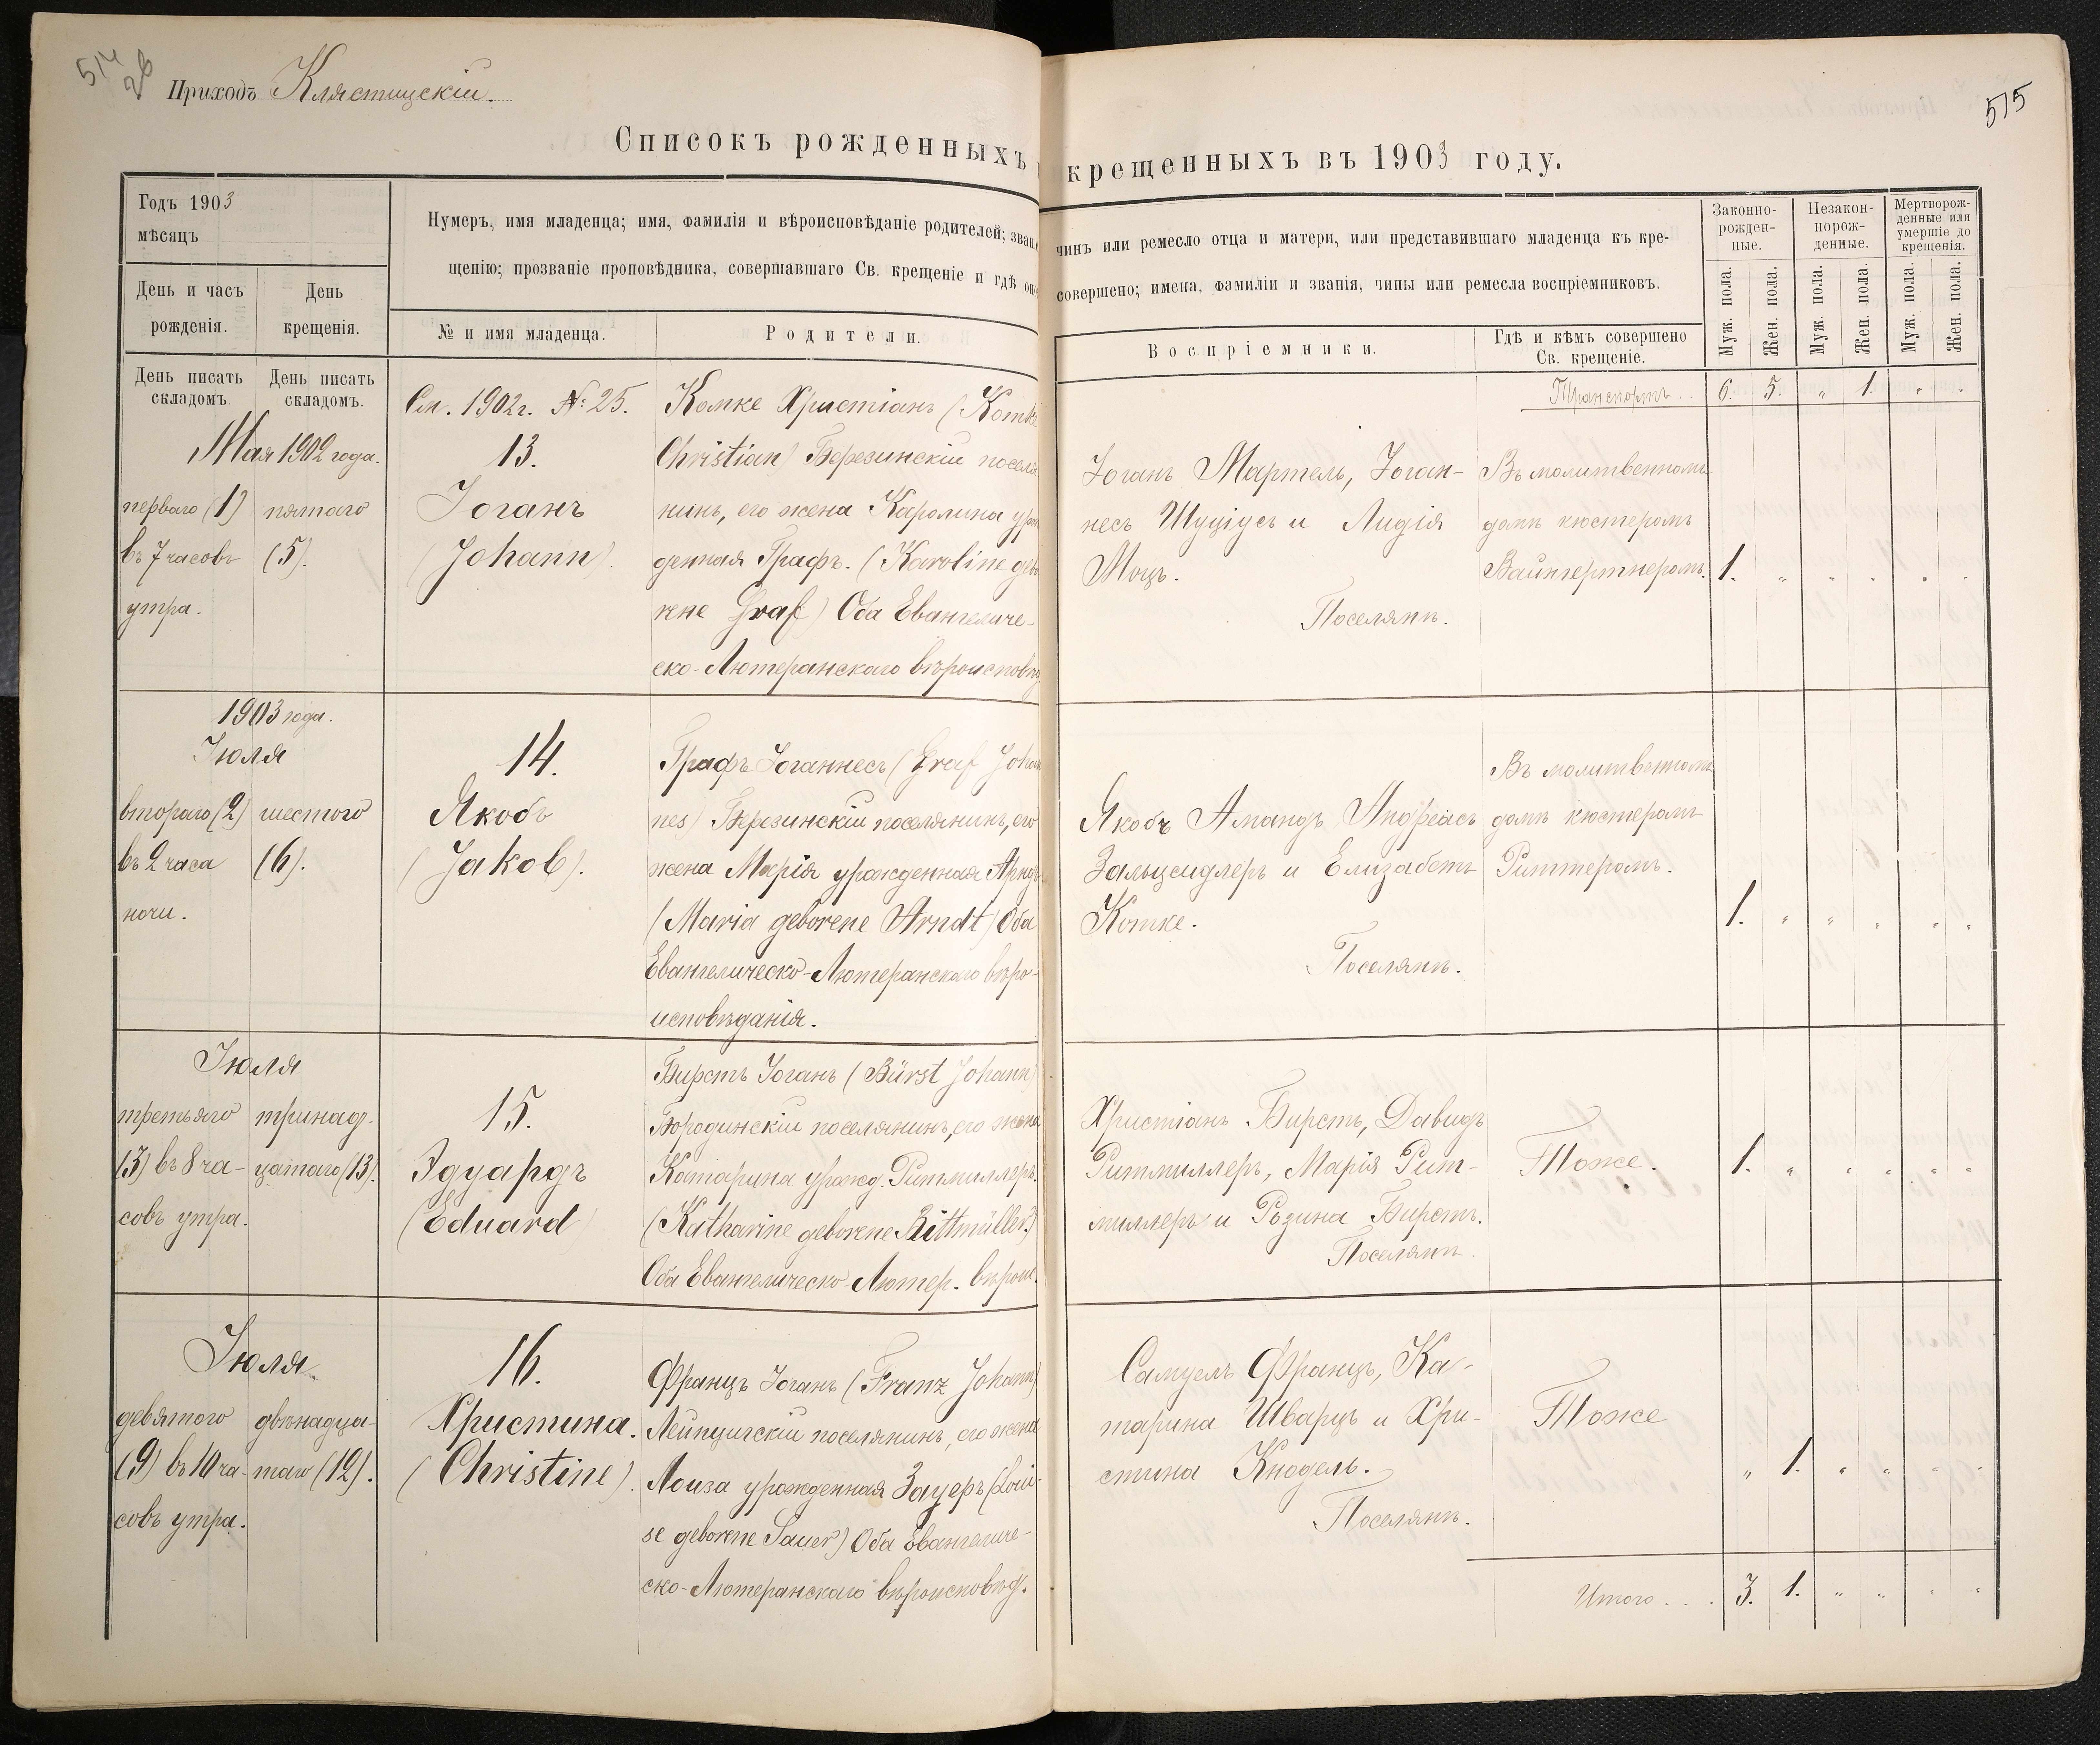 514
26
Приходъ Клястицскій.
515
Списокъ рожденныхъ
крещенныхъ въ 1903 году.
Годъ 1903
мѣсяцъ
День и часъ
рожденія.
День
крещенія.
Нумеръ, имя младенца; имя, фамилія и вѣроисповѣданіе родителей; званіе
щенію; прозваніе проповѣдника, совершавшаго Св. крещеніе и гдѣ оно
№ и имя младенца.
Родители.
чинъ или ремесло отца и матери, или представившаго младенца къ кре-
совершено; имена, фамиліи и званія, чины или ремесла воспріемниковъ.
Воспріемники.
Гдѣ и кѣмъ совершено
Св. крещеніе.
Законно-
рожден-
ные.
Незакон-
норож-
денные.
Мертворож-
денные или
умершіе до
крещенія.
Муж. пола.
Жен. пола.
Муж. пола.
Жен. пола.
Муж. пола.
Жен. пола.
День писать
складомъ.
День писать
складомъ.
Транспортъ . . 6. 5. „ 1. „ „
Мая 1902 года.
перваго (1)
въ 7 часовъ
утра.
пятаго
(5).
См. 1902 г. №: 25.
13.
Іоганъ
(Johann).
Комке Христіанъ (Komke
Christian) Березинскій поселя
нинъ, его жена Каролина уро
денная Графъ. (Karoline gebo
rene Graf) Оба Евангеличе-
ско-Лютеранскаго вѣроисповѣд
Іоганъ Мартель, Іоган-
несъ Шуціусъ и Лидія
Моцъ.
Поселяне.
Въ молитвенномъ
домѣ кюстеромъ
Вайнгертнеромъ.
1. „ „ „ „ „
1903 года.
Іюля
второго (2)
въ 2 часа
ночи.
шестого
(6).
14.
Якобъ
(Jakob).
Графъ Іоганнесъ (Graf Johan
nes) Березинскій поселянинъ, его
жена Марія урожденная Арндъ
(Maria geborene Arndt) Оба
Евангелическо-Лютеранскаго вѣро-
исповѣданія.
Якобъ Амандъ, Андреасъ
Зальцсидлеръ и Елизабетъ
Комке.
Поселяне.
Въ молитвенномъ
домѣ кюстеромъ
Риттеромъ.
1. „ „ „ „ „
Іюля
третьяго
(3) въ 8 ча-
совъ утра.
тринад-
цатаго (13).
15.
Эдуардъ
(Eduard)
Бирстъ Іоганъ (Bürst Johann)
Бородинскій поселянинъ, его жена
Катарина урожд. Ритмиллеръ.
(Katharine geborene Rittmüller)
Оба Евангелическо-Лютер. вѣрои.
Христіанъ Бирстъ, Давидъ
Ритмиллеръ, Марія Рит-
миллеръ и Розина Бирстъ.
Поселяне.
Тоже.
1. „ „ „ „ „
Іюля
девятого
(9) въ 10 ча-
совъ утра.
двѣнадца-
таго (12).
16.
Христина.
(Christine).
Францъ Іоганъ (Franz Johann)
Лейпцигскій поселянинъ, его жена
Лоиза урожденная Зауеръ (Loui-
se geborene Sauer) Оба Евангеличе-
ско-Лютеранскаго вѣроисповѣд.
Самуелъ Францъ, Ка-
тарина Шварцъ и Хри-
стина Кнодель.
Поселяне.
Тоже
„ 1. „ „ „ „
Итого . . . 3. 1. „ „ „ „